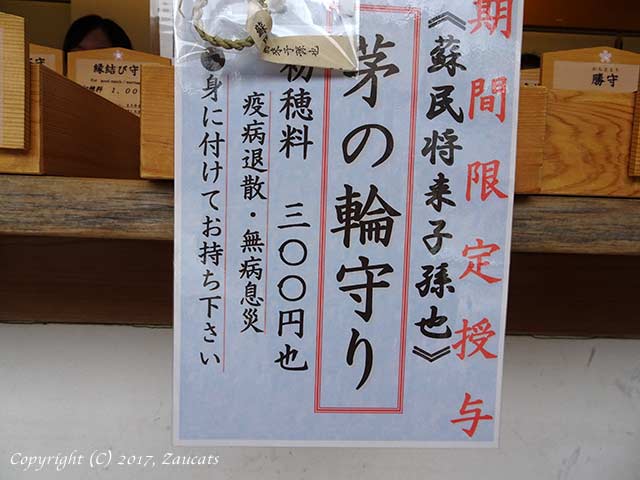 期間限定授与
《蘇民将来子孫也》
茅の輪守り
初穂料 三〇〇円也
疫病退散・無病息災
身に付けてお持ち下さい
縁結び守
勝守
蘇
Copyright (C) 2017, Zaucats